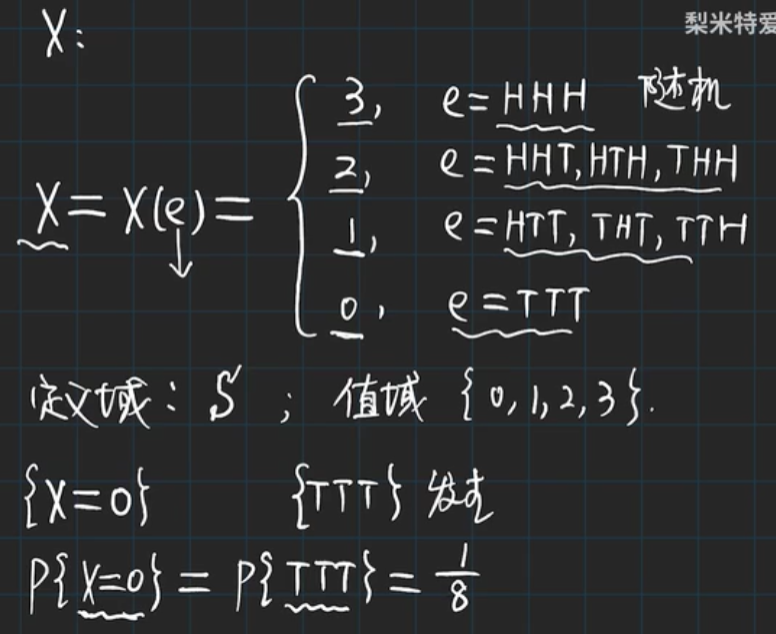 X:
梨米特爱
3, e=HHH 随机
2, e=HHT,HTH,THH
X=X(e)=
1, e=HTT, THT, TTH
0, e=TTT
定义域: S ; 值域 {0,1,2,3}.
{X=0} {TTT} 发生
P{X=0} = P{TTT} = 1/8